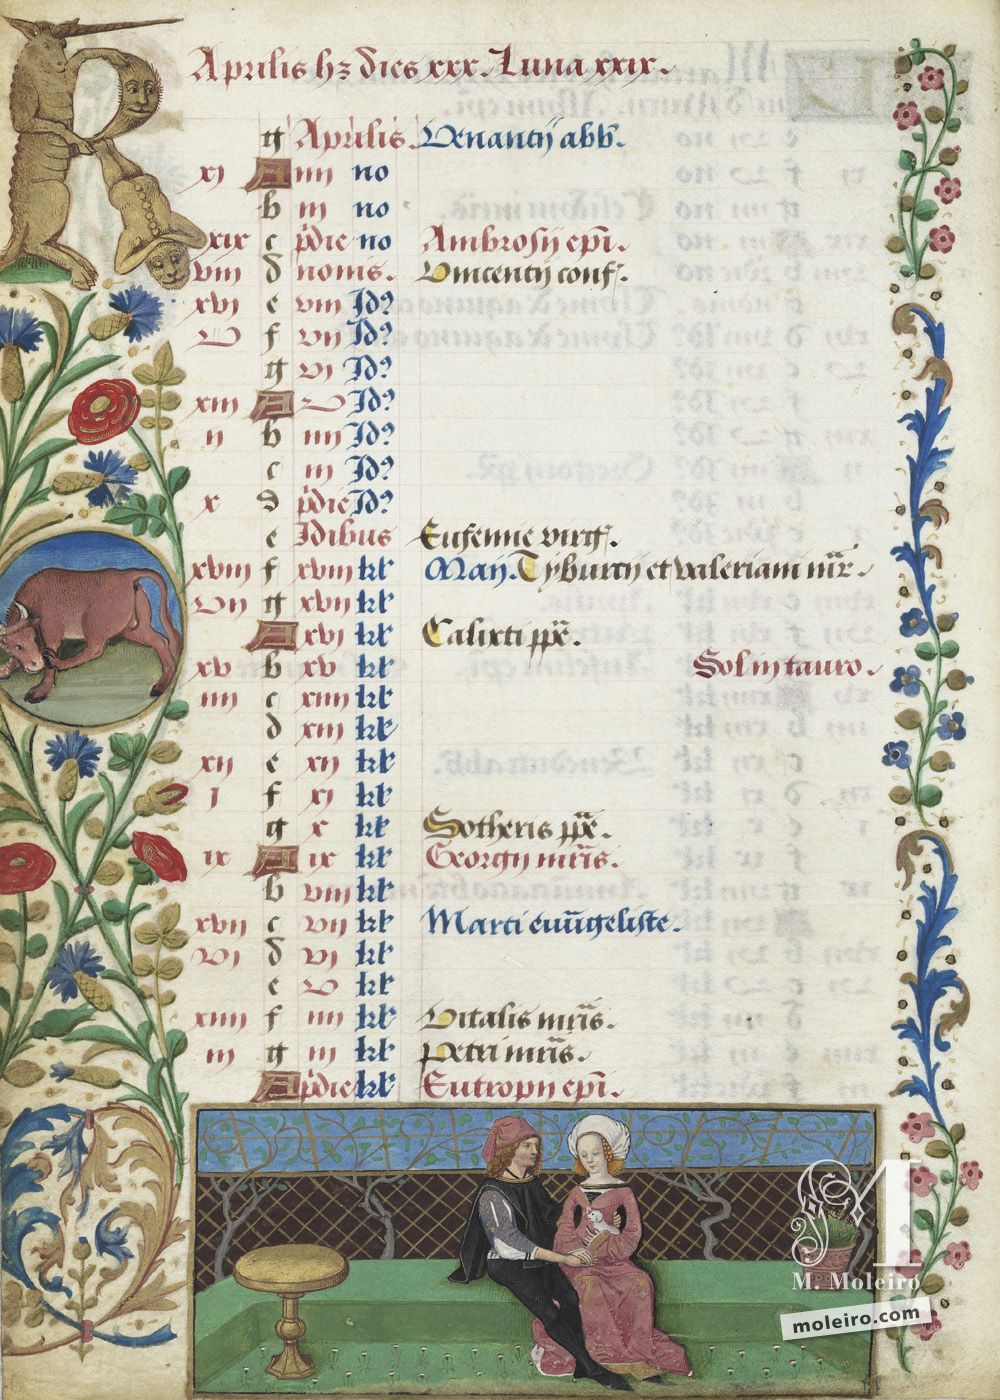 Aprilis hz dies xxx. Luna xxix.
g Aprilis. Venantij abb.
xj A iiij no
b iij no
xix c pdie no Ambrosij epi.
viij d nonis. Vincentij conf.
xvj e viij Id9
v f vij Id9
g vj Id9
xiij A v Id9
ij b iiij Id9
c iij Id9
x d pdie Id9
e Idibus Eufemie virg.
xviij f xviij kl May. Tyburcij et valeriani mr.
vij g xvij kl
A xvj kl Calixti pp.
xv b xv kl Sol in tauro.
iiij c xiiij kl
d xiij kl
xij e xij kl
j f xj kl
g x kl Sotheris pp.
ix A ix kl Georgij mris.
b viij kl
xvij c vij kl Marci evvngeliste.
vj d vj kl
e v kl
xiiij f iiij kl Vitalis mris.
iij g iij kl Petri mris.
A pdie kl Eutropij epi.
M
M. Moleiro
moleiro.com